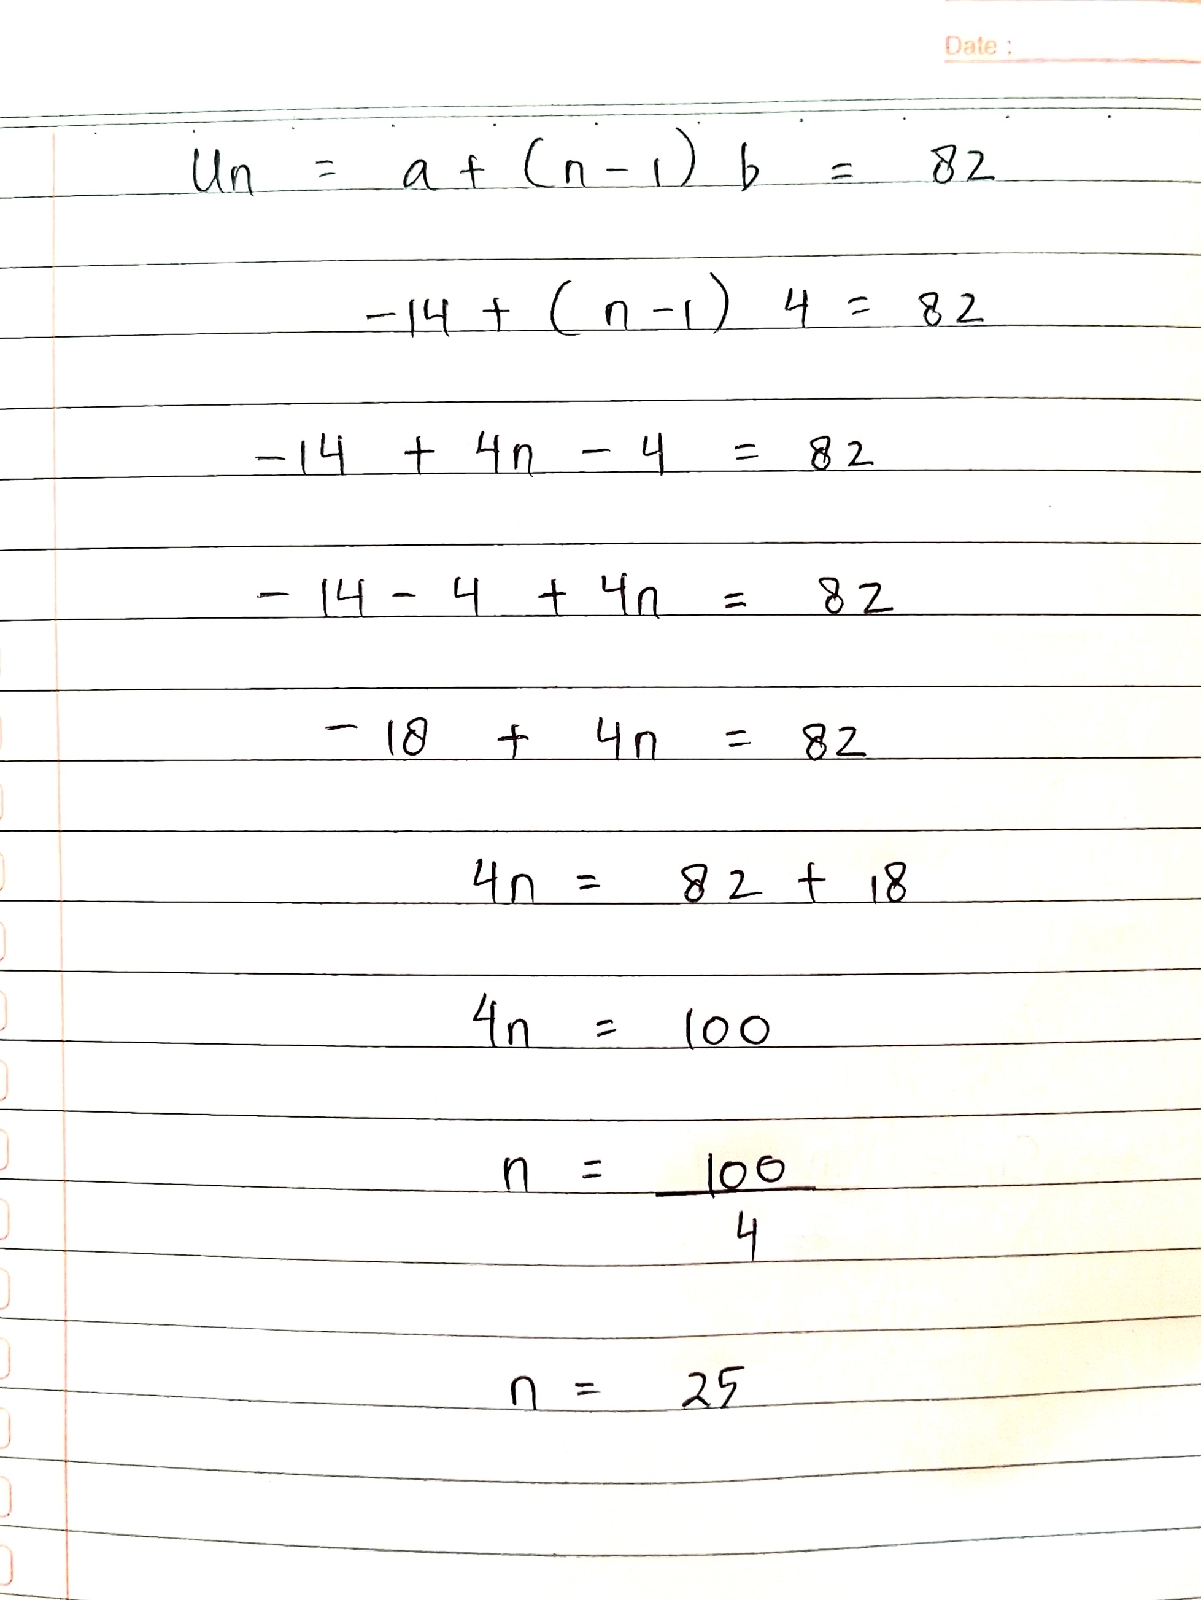 Date :
Un = a + (n-1) b = 82
-14 + (n-1) 4 = 82
-14 + 4n - 4 = 82
-14 - 4 + 4n = 82
-18 + 4n = 82
4n = 82 + 18
4n = 100
n = 100
4
n = 25